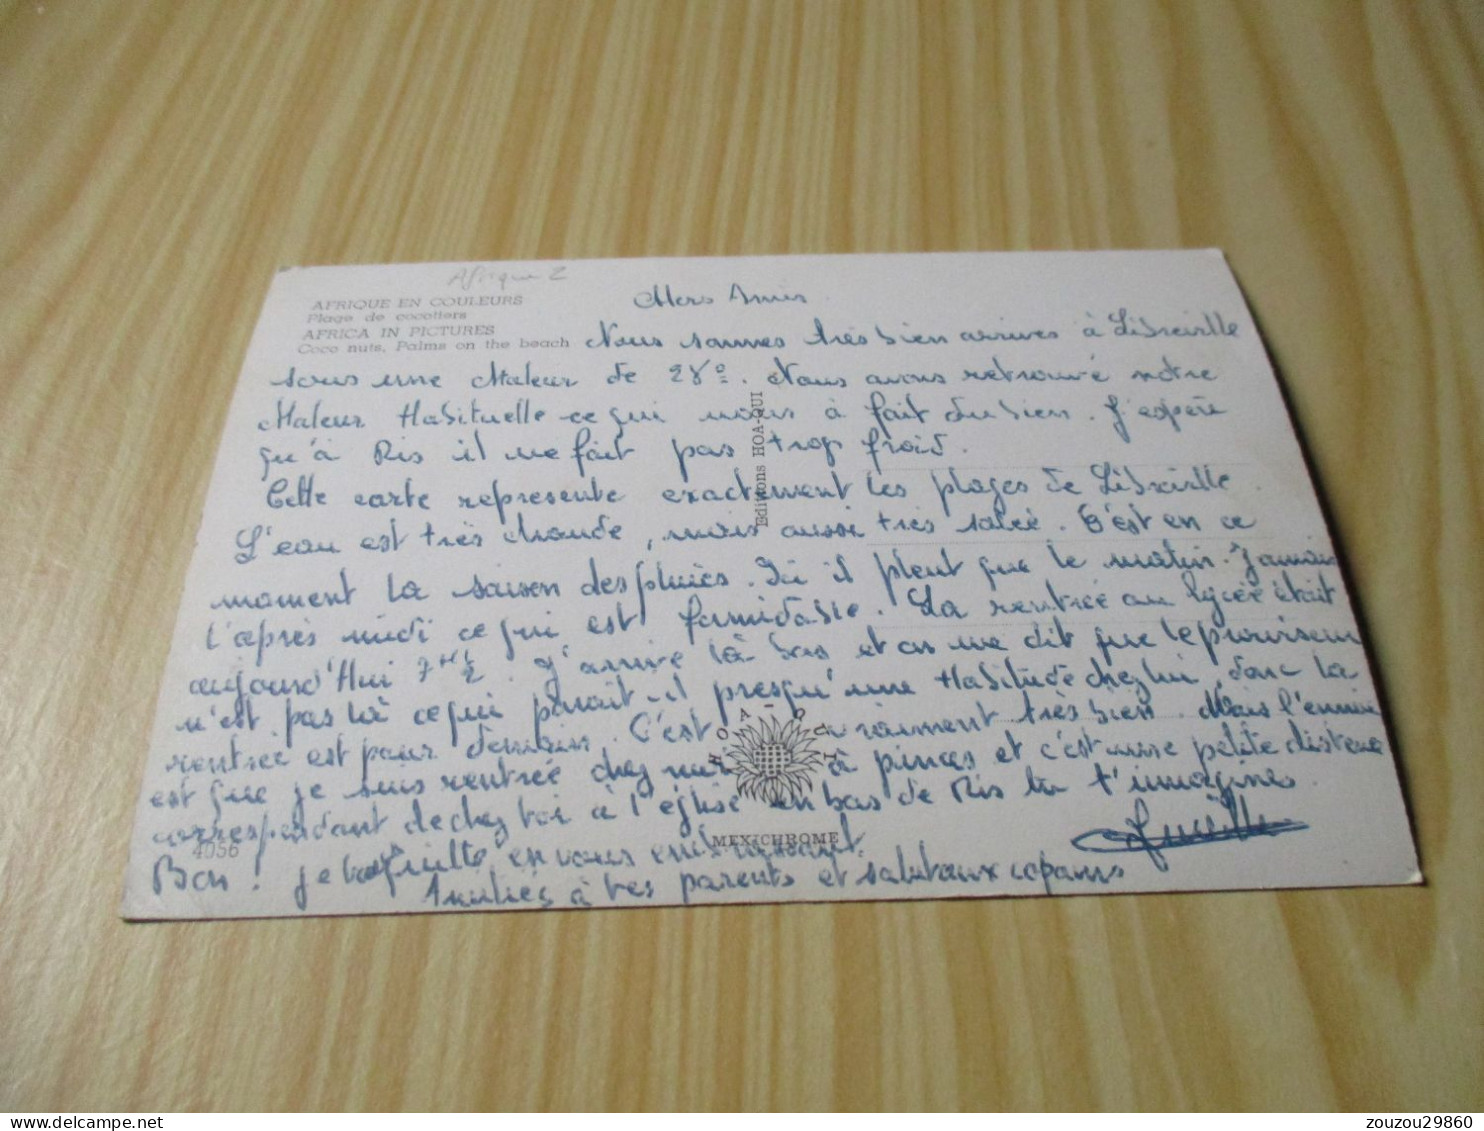 Afrique 2
AFRIQUE EN COULEURS
Plage de cocotiers
AFRICA IN PICTURES
Coco nuts, Palms on the beach
Chers Amis
Nous sommes très bien arrivés à Libreville
sous une chaleur de 28°. Nous avons retrouvé notre
chaleur Habituelle ce qui nous à fait du bien. J'espère
qu'à Ris il ne fait pas trop froid.
Cette carte represente exactement les plages de Libreville.
L'eau est très chaude, mais aussi très salée. C'est en ce
moment la saison des pluies. Ici il pleut que le matin. Jamais
l'après midi ce qui est formidable. La rentrée au lycée était
aujourd'Hui 7H 1/2. J'arrive là bas et on me dit que le proviseur
n'est pas là ce qui parait-il presqu'une Habitude chez lui, donc la
rentrée est pour demain. C'est vraiment très bien. Mais l'ennui
est que je suis rentrée chez moi à pinces et c'est une petite distance
correspondant de chez toi à l'église en bas de Ris tu t'imagines.
Bon! je vous quitte en vous embrassant.
Amitiés à tes parents et salut aux copains
Editions HOA-QUI
HOA-QUI
MEXICHROME
4056
zouzou29860